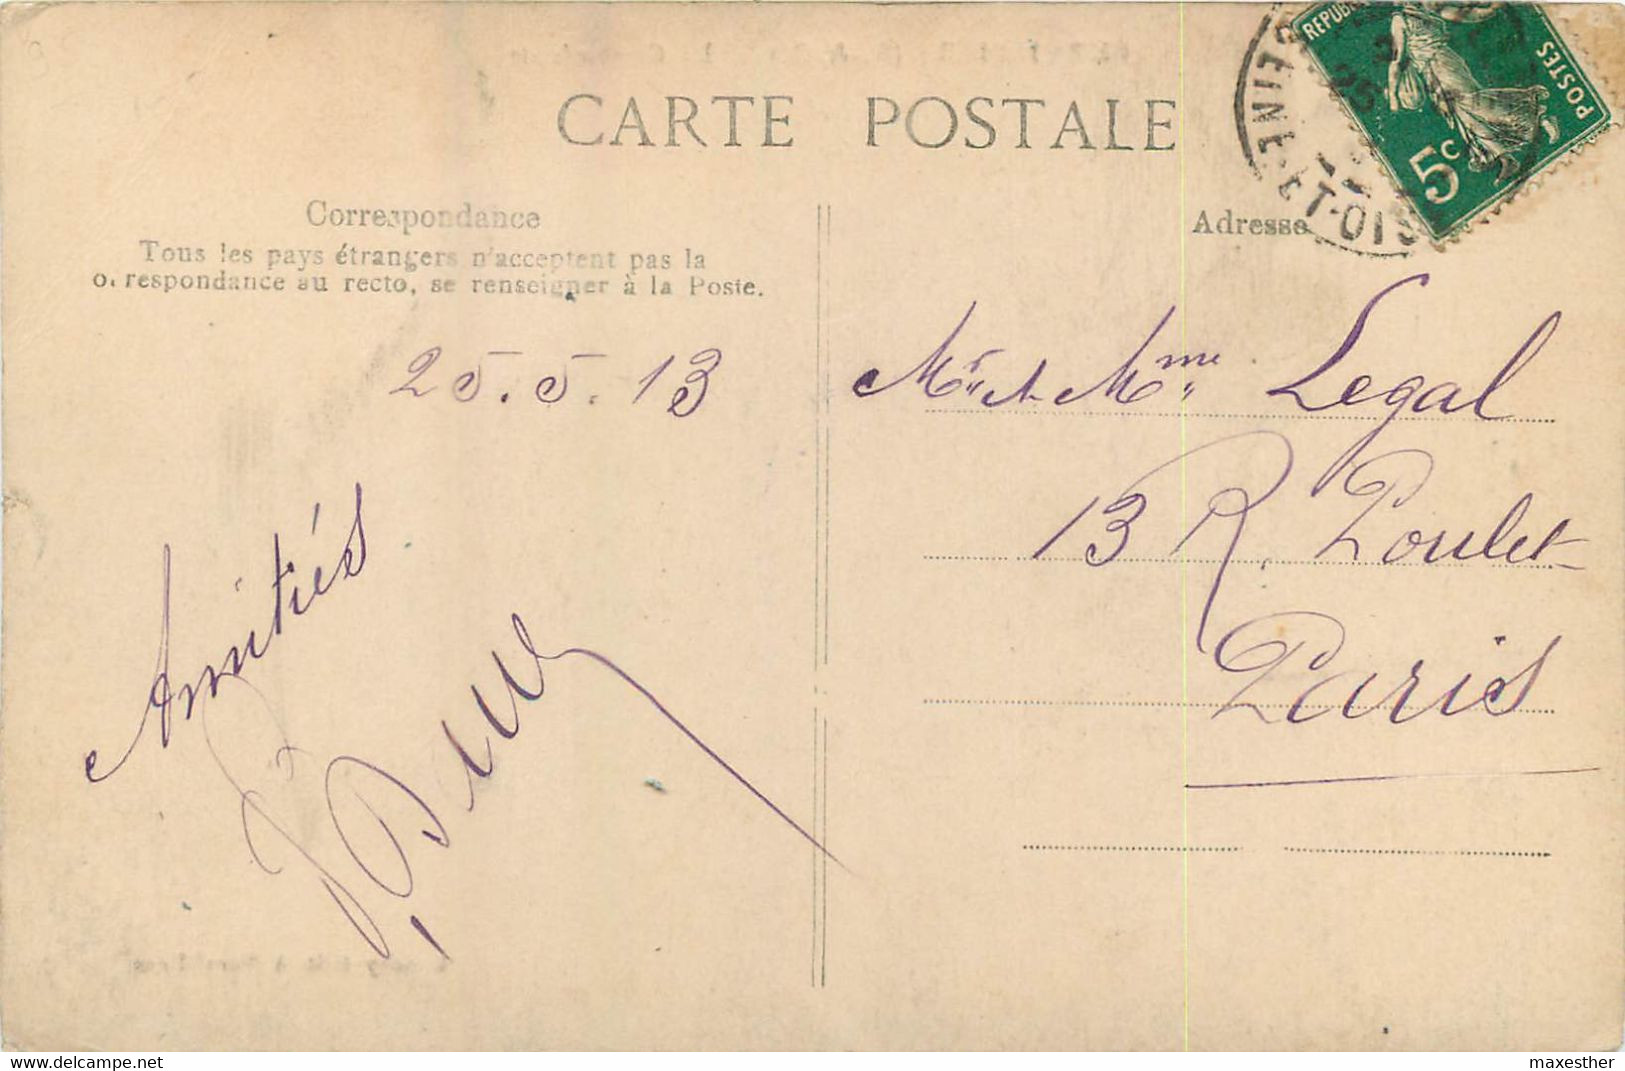 CARTE POSTALE
REPUB
POSTES
5c
SEINE-ET-OIS
Correspondance
Tous les pays étrangers n'acceptent pas la
orrespondance au recto, se renseigner à la Poste.
Adresse
25.5.13
Amitiés
Mr et Mme Legal
13 R. Poulet
Paris
delcampe.net
maxesther